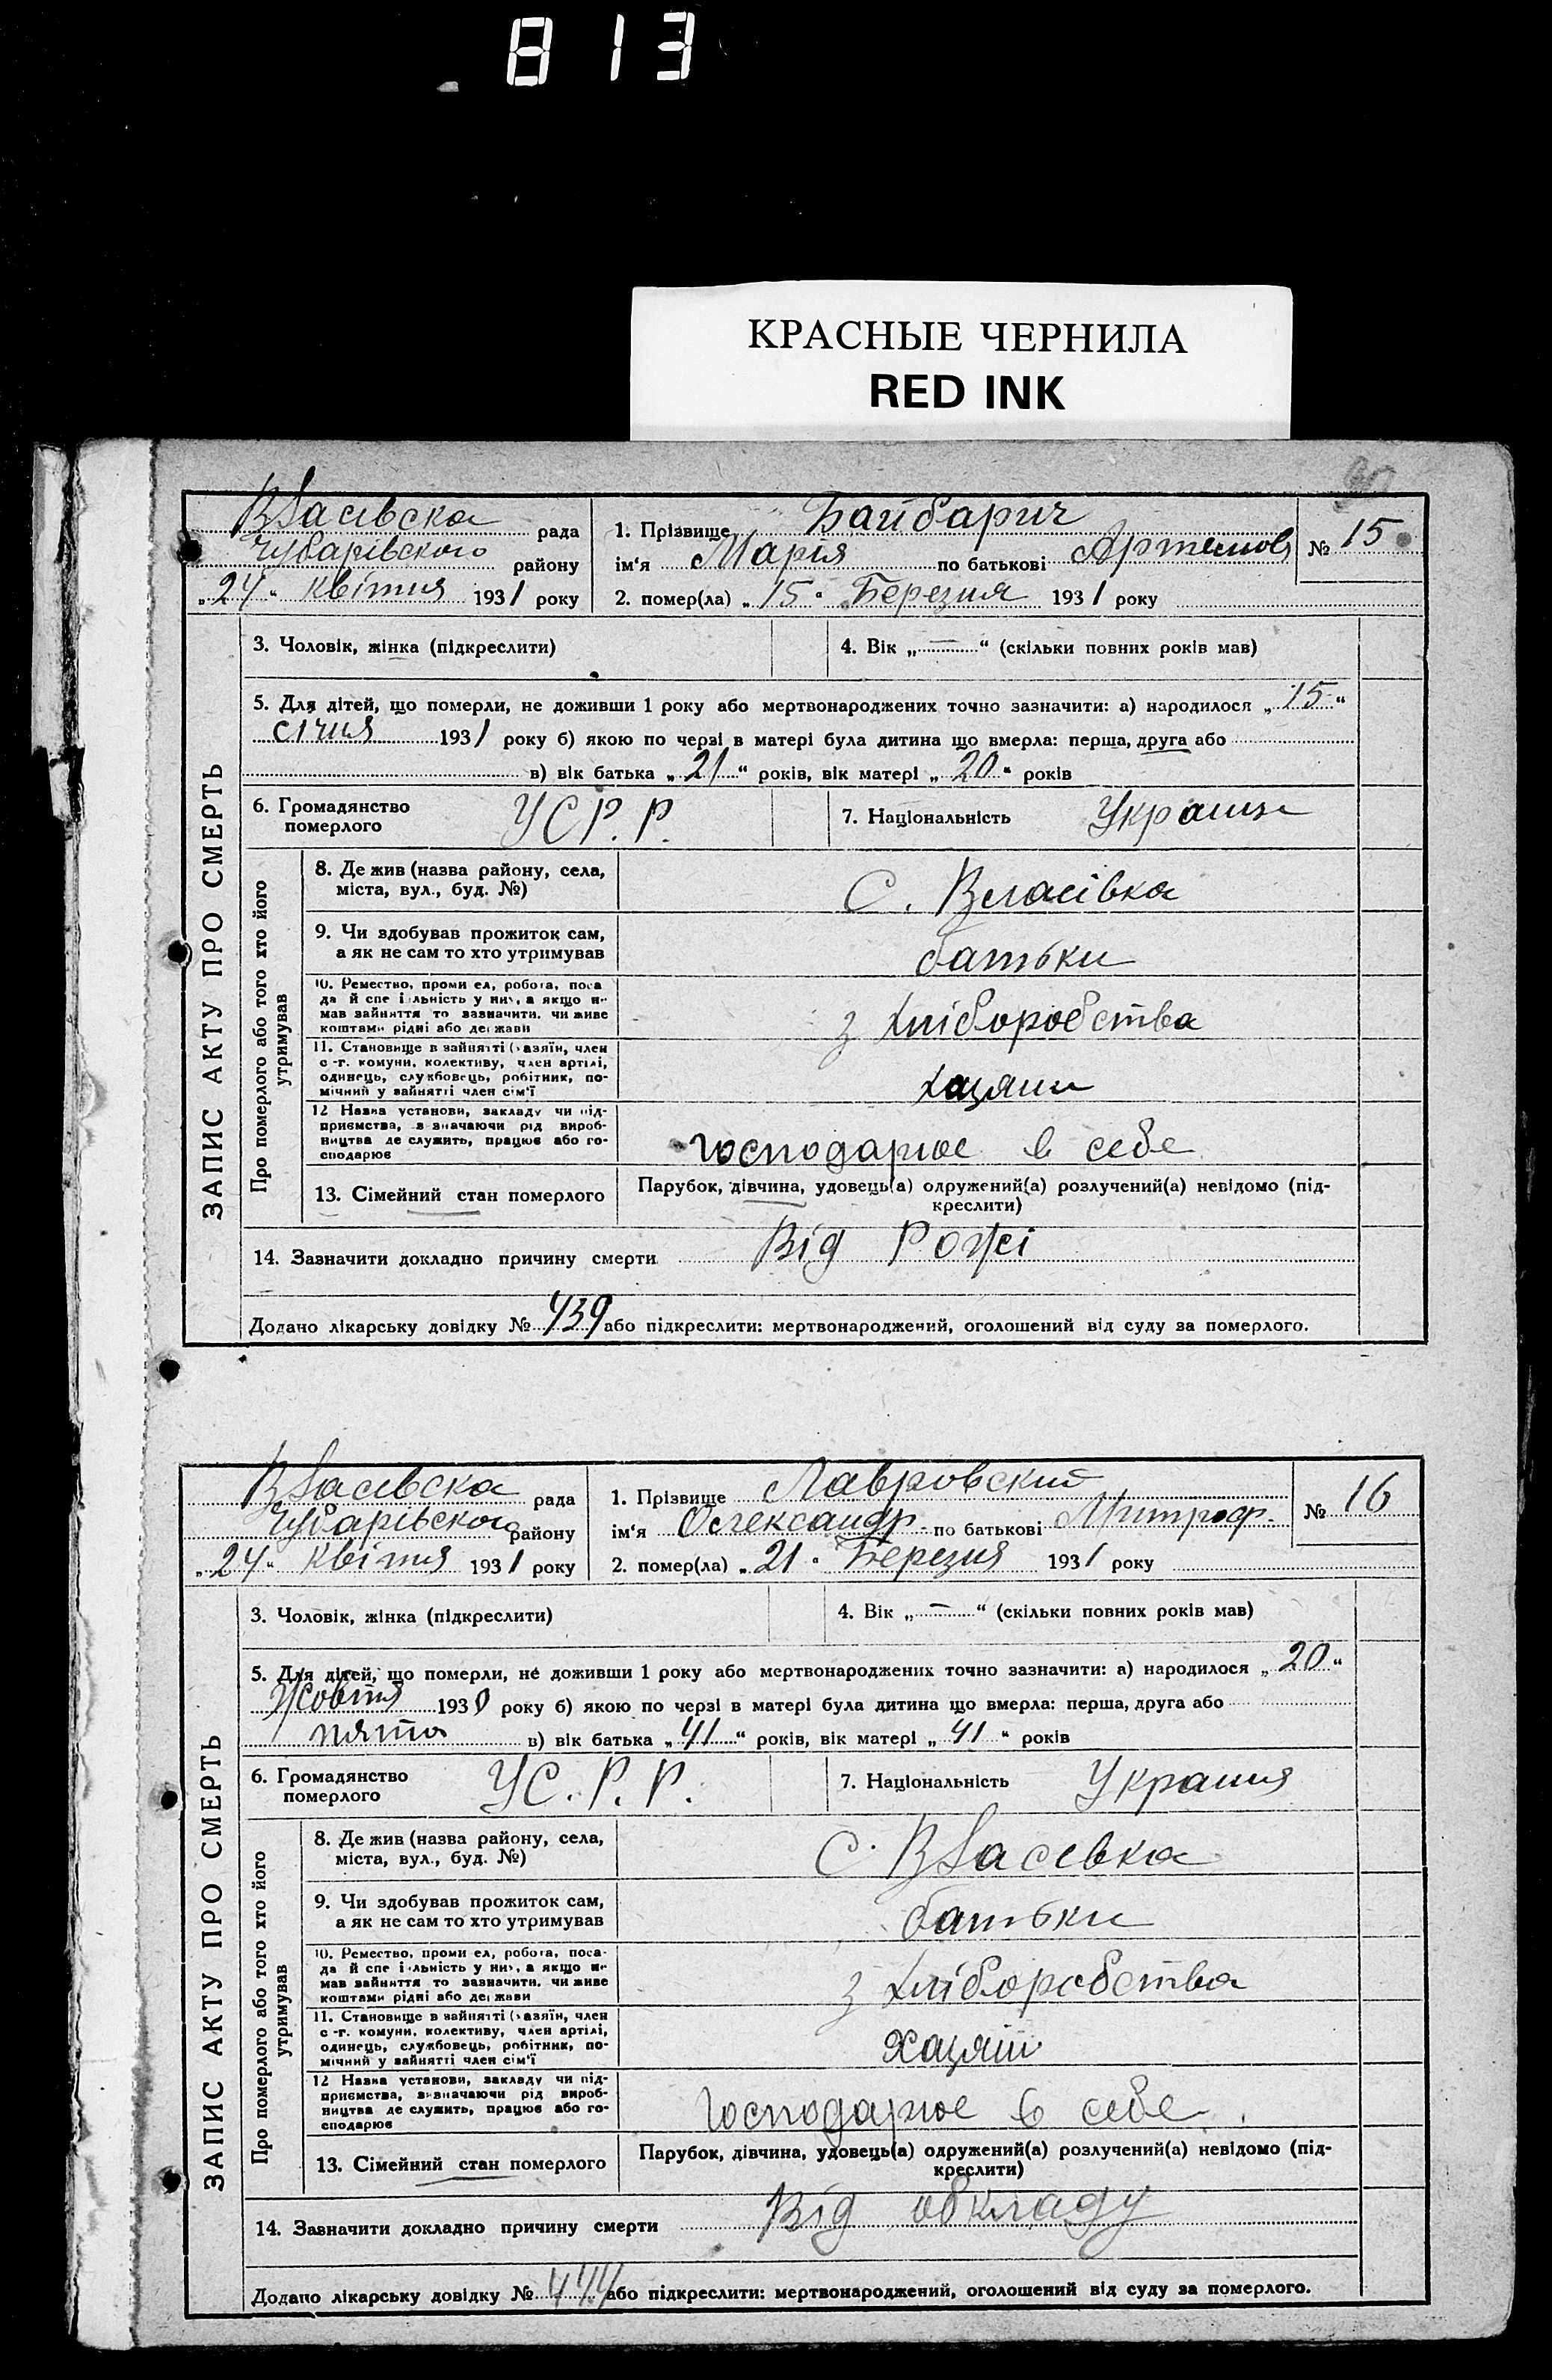 813
КРАСНЫЕ ЧЕРНИЛА
RED INK
ЗАПИС АКТУ ПРО СМЕРТЬ
Власівска рада
Чубарівского району
„24“ квітня 1931 року
1. Прізвище Байбарич
ім'я Марія по батькові Артемов
№ 15
2. помер(ла) „15“ Березня 1931 року
3. Чоловік, жінка (підкреслити)
4. Вік „—“ (скільки повних років мав)
5. Для дітей, що померли, не доживши 1 року або мертвонароджених точно зазначити: а) народилося „15“
січня 1931 року б) якою по черзі в матері була дитина що вмерла: перша, друга або
в) вік батька „21“ років, вік матері „20“ років
6. Громадянство
померлого
УСР.Р.
7. Національність
Про померлого або того хто його
утримував
8. Де жив (назва району, села,
міста, вул., буд. №)
с. Власівка
9. Чи здобував прожиток сам,
а як не сам то хто утримував
батьки
10. Ремество, проми ел, робота, поса
да й спе і льність у них, а якщо не
мав зайняття то зазначити, чи живе
коштами рідні або держави
з хліборобства
11. Становище в зайнятті (хазяїн, член
с-г. комуни, колективу, член артілі,
одинець, службовець, робітник, по-
мічний у зайнятті член сім'ї
хазяин
12 Назва установи, закладу чи під-
приємства, зазначаючи рід вироб-
ництва де служить, працює або го-
сподарює
господарює в себе
13. Сімейний стан померлого
Парубок, дівчина, удовець(а) одружений(а) розлучений(а) невідомо (під-
креслити)
14. Зазначити докладно причину смерти Від Рожі
Додано лікарську довідку № 439 або підкреслити: мертвонароджений, оголошений від суду за померлого.
ЗАПИС АКТУ ПРО СМЕРТЬ
Власівска рада
Чубарівского району
„24“ квітня 1931 року
1. Прізвище Лавровский
ім'я Олександр по батькові Митроф.
№ 16
2. помер(ла) „21“ Березня 1931 року
3. Чоловік, жінка (підкреслити)
4. Вік „—“ (скільки повних років мав)
5. Для дітей, що померли, не доживши 1 року або мертвонароджених точно зазначити: а) народилося „20“
Жовтня 1930 року б) якою по черзі в матері була дитина що вмерла: перша, друга або
пята в) вік батька „41“ років, вік матері „41“ років
6. Громадянство
померлого
УС.Р.Р.
7. Національність
Про померлого або того хто його
утримував
8. Де жив (назва району, села,
міста, вул., буд. №)
с. Власівка
9. Чи здобував прожиток сам,
а як не сам то хто утримував
батьки
10. Ремество, проми ел, робота, поса-
да й спе і льність у них, а якщо не
мав зайняття то зазначити, чи живе
коштами рідні або держави
з хліборобства
11. Становище в зайнятті (хазяїн, член
с-г. комуни, колективу, член артілі,
одинець, службовець, робітник, по-
мічний у зайнятті член сім'ї
Хазяін
12 Назва установи, закладу чи під-
приємства, зазначаючи рід вироб-
ництва де служить, працює або го-
сподарює
господарює в себе
13. Сімейний стан померлого
Парубок, дівчина, удовець(а) одружений(а) розлучений(а) невідомо (під-
креслити)
14. Зазначити докладно причину смерти Від обкладу
Додано лікарську довідку № 444 або підкреслити: мертвонароджений, оголошений від суду за померлого.